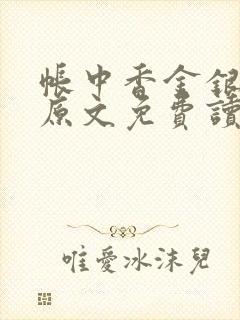 帳中香金銀
原文免費讀
唯愛冰沫兒